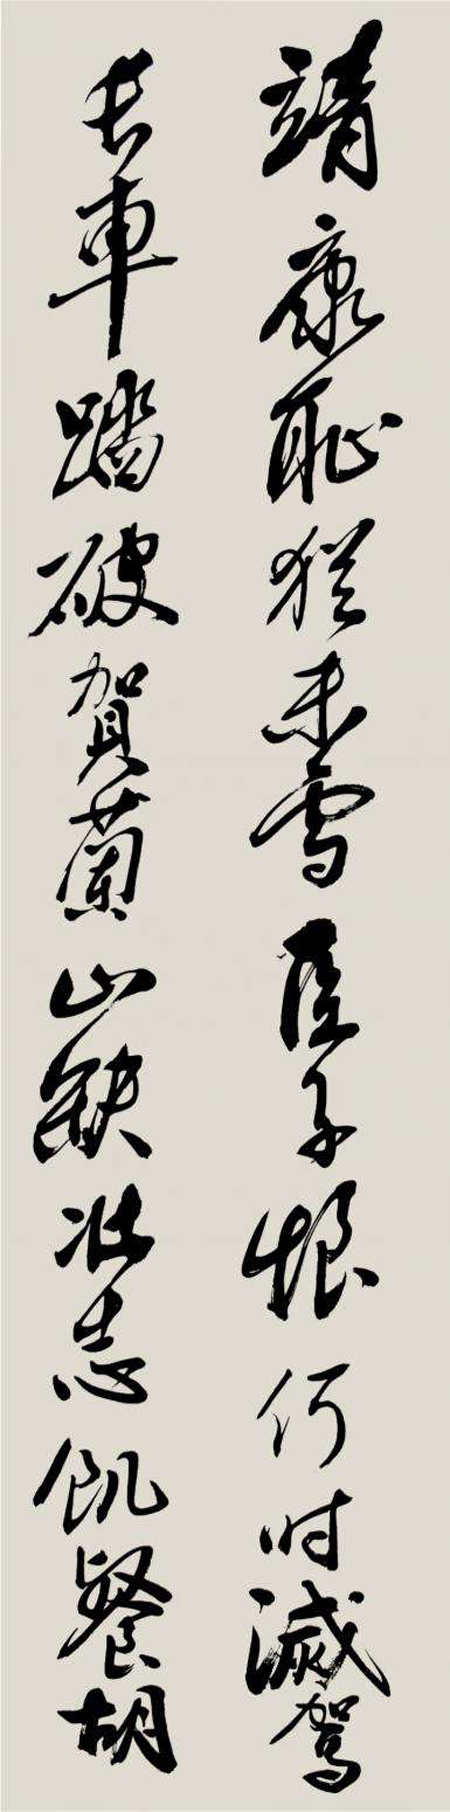 靖康恥猶未雪臣子恨何时滅駕
长車踏破賀蘭山缺壮志飢餐胡